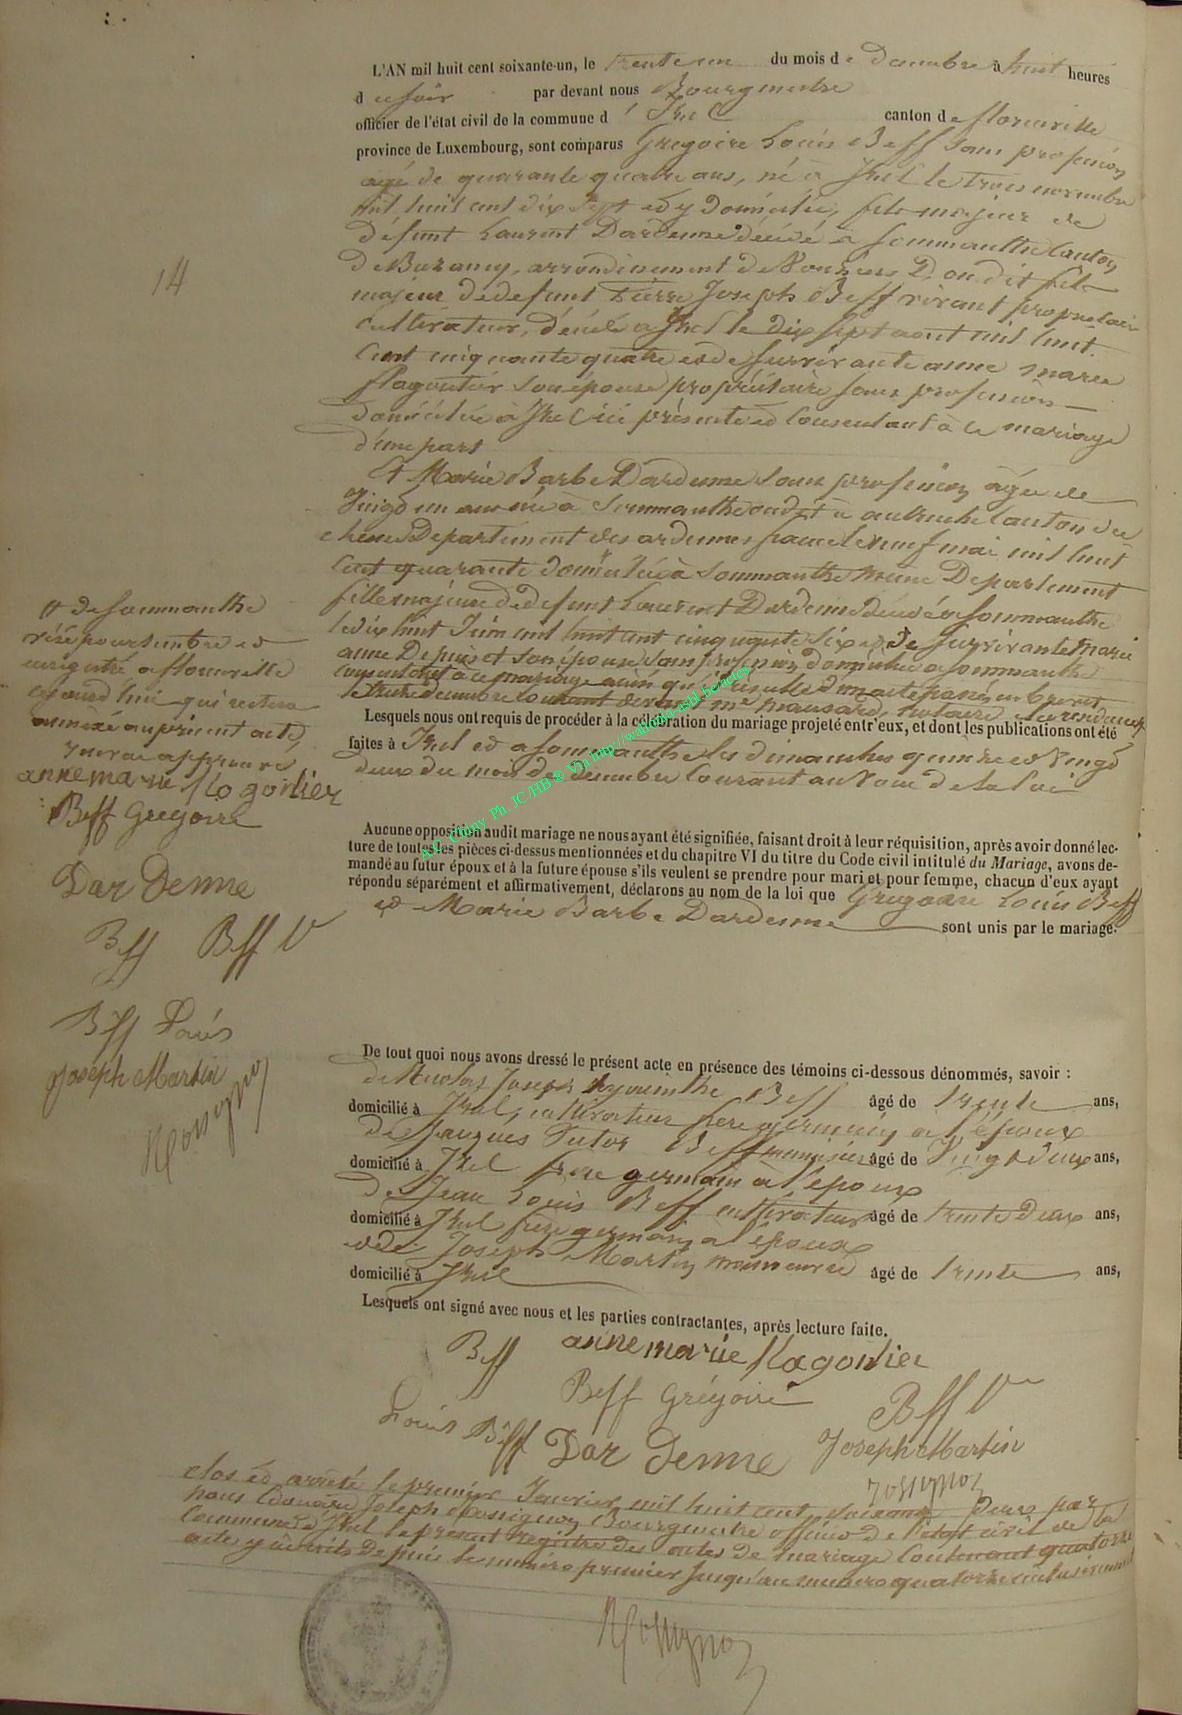 L'AN mil huit cent soixante-un, le trente un du mois de Decembre à huit heures
du soir par devant nous Bourgmestre
officier de l'état civil de la commune d' Izel canton de florenville
province de Luxembourg, sont comparus Grégoire Louis Beff sans profession
agé de quarante quatre ans, né à Izel le trois novembre
mil huit cent dix sept et y domicilié, fils majeur de
défunt Laurent Dardenne décédé à Sommauthe Canton
de Buzancy, arrondissement de Vouziers D. on dit fils
majeur de defunt Pierre Joseph Beff vivant proprietaire
cultivateur, décédé à Izel le dix sept aout mil huit
Cent cinquante quatre et de survivante anne marie
flagontier son épouse propriétaire sans profession
domiciliée à Izel ici présente et consentant à ce mariage
d'une part
Et Marie Barbe Dardenne sans profession agée de
Vingt un ans née à Sommauthe ondit à autruche Canton du
chene Departement des ardennes france le neuf mai mil huit
Cent quarante domiciliée à Sommauthe même Departement
fille majeure de defunt Laurent Dardenne décédé à Sommauthe
le dix huit Juin mil huit cent cinquante six et de survivante Marie
anne Depuiset son épouse sans profession domiciliée à Sommauthe
consentant à ce mariage ainsi qu'il resulte d'un acte passé en brevet
le treize decembre courant devant me mausard, notaire à la residence
Lesquels nous ont requis de procéder à la célébration du mariage projeté entr'eux, et dont les publications ont été
faites à Izel et à Sommauthe les dimanches quinze et Vingt
deux du mois de decembre courant au Vœu de la loi
Aucune opposition audit mariage ne nous ayant été signifiée, faisant droit à leur réquisition, après avoir donné lec-
ture de toutes les pièces ci-dessus mentionnées et du chapitre VI du titre du Code civil intitulé du Mariage, avons de-
mandé au futur époux et à la future épouse s'ils veulent se prendre pour mari et pour femme, chacun d'eux ayant
répondu séparément et affirmativement, déclarons au nom de la loi que Grégoire Louis Beff
et Marie Barbe Dardenne sont unis par le mariage.
De tout quoi nous avons dressé le présent acte en présence des témoins ci-dessous dénommés, savoir :
de Nicolas Joseph hyacinthe Beff âgé de trente ans,
domicilié à Izel, cultivateur frere germain à l'époux
de Jacques Victor Beff menuisier âgé de Vingt deux ans,
domicilié à Izel frere germain à l'époux
de Jean Louis Beff cultivateur âgé de trente deux ans,
domicilié à Izel frere germain à l'époux
et de Joseph Martin manœuvre âgé de trente ans,
domicilié à Izel
Lesquels ont signé avec nous et les parties contractantes, après lecture faite.
Beff anne marie flagontier
Beff Grégoire Beff V
Louis Beff Dar Denne Joseph Martin
rossignon
clos et arrêté le premier Janvier mil huit cent soixante deux par
nous Edouard Joseph Rossignon Bourgmestre officier de l'état civil de la
Commune d'Izel le présent registre des actes de mariage Contenant quatorze
acte y inscrits depuis le numéro premier Jusqu'au numero quatorze inclusivement
Rossignon
14
et de Sommauthe
visé pour timbre et
enregistré a florenville
cejourd'hui qui restera
annexé au present acte,
renvoi approuvé
anne marie flagontier
Beff Gregoire
Dar Denne
Beff Beff V
Beff Louis
Joseph Martin
Rossignon
A.C. Chiny Ph. JC/HB @ Via http://wallonia-asbl.be/actes